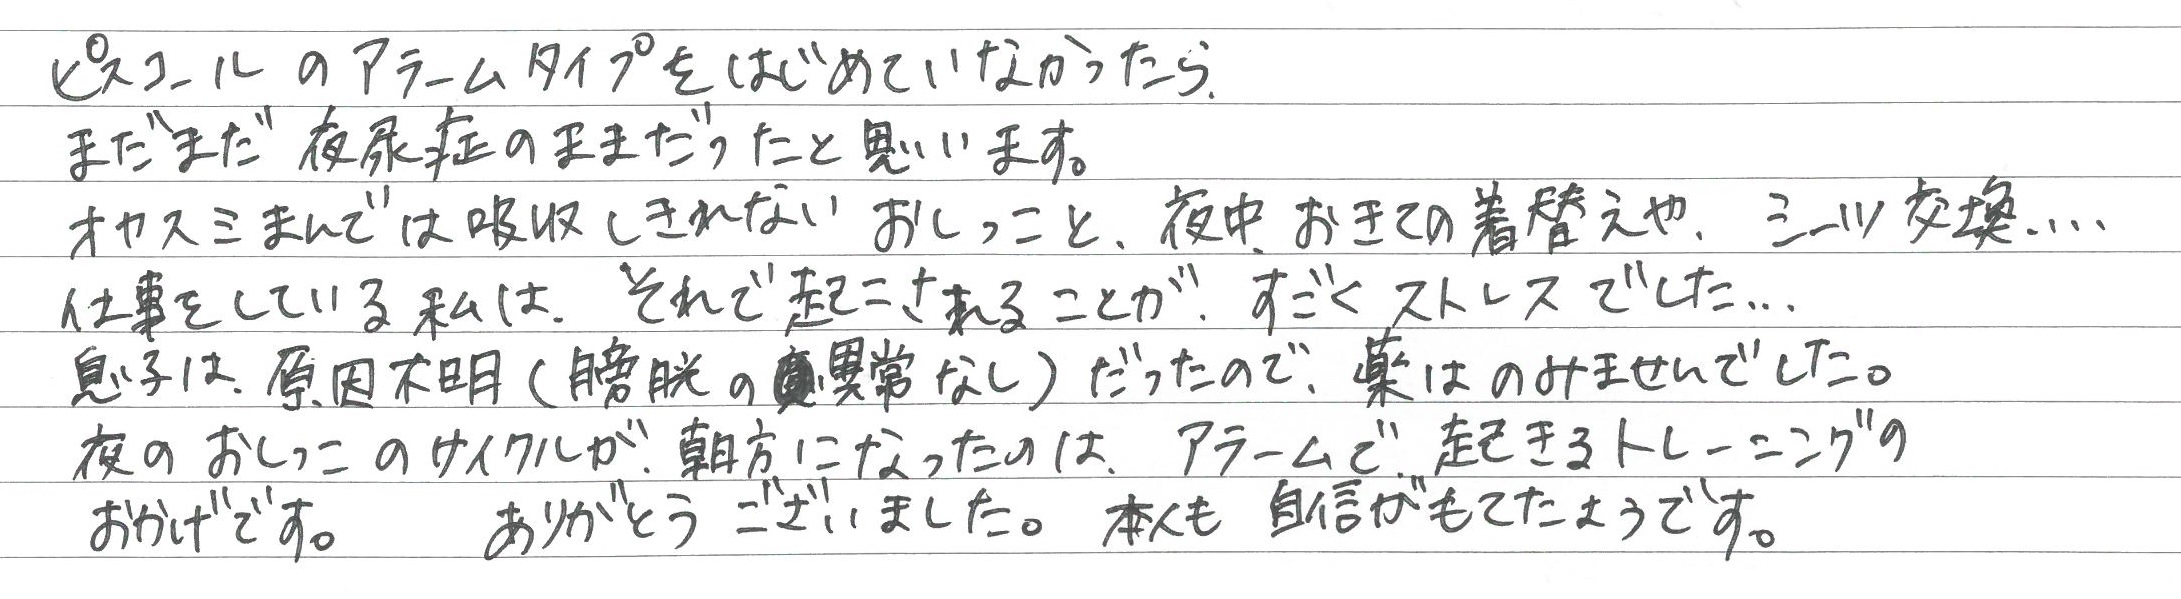 ピスコールのアラームタイプをはじめていなかったら、
まだまだ夜尿症のままだったと思います。
オヤスミまんでは吸収しきれないおしっこと、夜中、おきての着替えや、シーツ交換....
仕事をしている私は、それで起こされることが、すごくストレスでした...
息子は、原因不明(膀胱の異常なし)だったので、薬はのみませんでした。
夜のおしっこのサイクルが、朝方になったのは、アラームで、起きるトレーニングの
おかげです。 ありがとうございました。本人も自信がもてたようです。